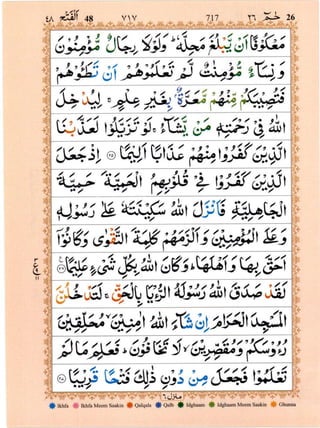 ٤٨ اَلْفَتْح 48 ٧١٧ 717 حٰمٓ ٢٦ 26
مَعْكُوْفًا اَنْ يَّبْلُغَ مَحِلَّهٗ ؕ وَلَوْلَا رِجَالٌ مُّؤْمِنُوْنَ
وَنِسَآءٌ مُّؤْمِنٰتٌ لَّمْ تَعْلَمُوْهُمْ اَنْ تَطَـُٔوْهُمْ
فَتُصِيْبَكُمْ مِّنْهُمْ مَّعَرَّةٌۢ بِغَيْرِ عِلْمٍ ۚ لِيُدْخِلَ
اللّٰهُ فِيْ رَحْمَتِهٖ مَنْ يَّشَآءُ ۚ لَوْ تَزَيَّلُوْا لَعَذَّبْنَا
الَّذِيْنَ كَفَرُوْا مِنْهُمْ عَذَابًا اَلِيْمًا ﴿٢٥﴾ اِذْ جَعَلَ
الَّذِيْنَ كَفَرُوْا فِيْ قُلُوْبِهِمُ الْحَمِيَّةَ حَمِيَّةَ
الْجَاهِلِيَّةِ فَاَنْزَلَ اللّٰهُ سَكِيْنَتَهٗ عَلٰى رَسُوْلِهٖ
وَعَلَى الْمُؤْمِنِيْنَ وَاَلْزَمَهُمْ كَلِمَةَ التَّقْوٰى وَكَانُوْٓا
اَحَقَّ بِهَا وَاَهْلَهَا ؕ وَكَانَ اللّٰهُ بِكُلِّ شَيْءٍ عَلِيْمًا ﴿٢٦﴾
لَقَدْ صَدَقَ اللّٰهُ رَسُوْلَهُ الرُّءْيَا بِالْحَقِّ ۚ لَتَدْخُلُنَّ
الْمَسْجِدَ الْحَرَامَ اِنْ شَآءَ اللّٰهُ اٰمِنِيْنَ ۙ مُحَلِّقِيْنَ
رُءُوْسَكُمْ وَمُقَصِّرِيْنَ ۙ لَا تَخَافُوْنَ ؕ فَعَلِمَ مَا لَمْ
تَعْلَمُوْا فَجَعَلَ مِنْ دُوْنِ ذٰلِكَ فَتْحًا قَرِيْبًا ﴿٢٧﴾
منزل ٦
Ikhfa Ikhfa Meem Saakin Qalqala Qalb Idghaam Idghaam Meem Saakin Ghunna